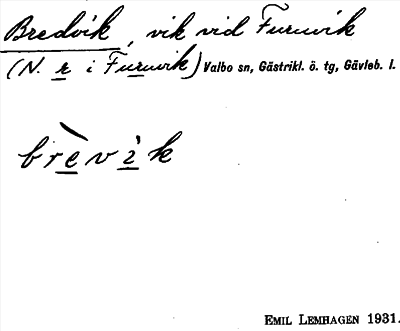 Bredvik, vik vid Furuvik
(N. r i Furuvik) Valbo sn, Gästrikl. ö. tg, Gävleb. l.
brèvìk
EMIL LEMHAGEN 1931.